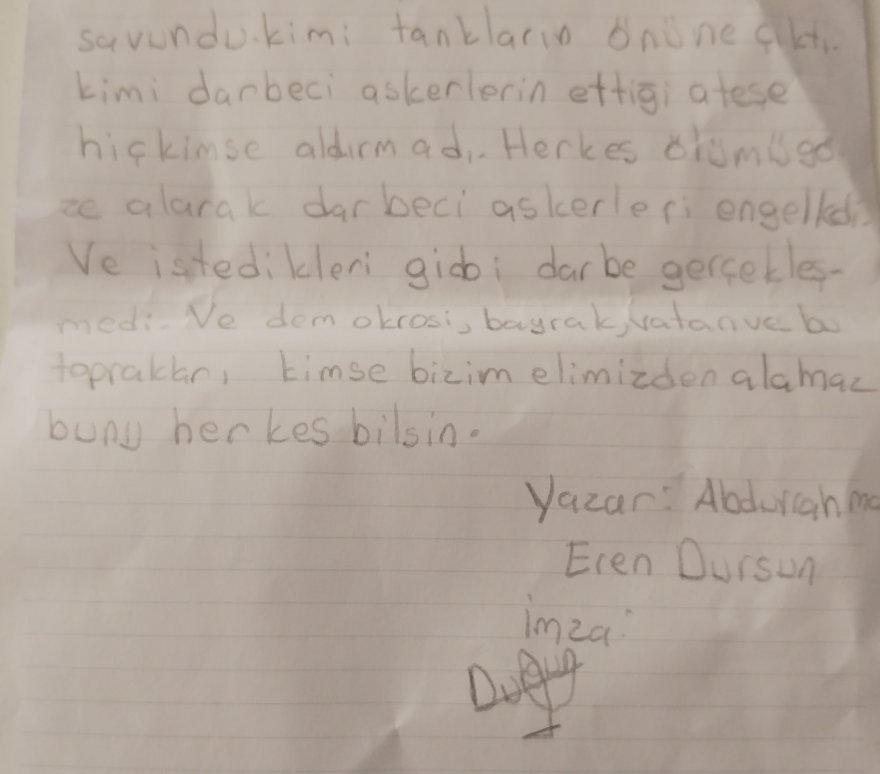 savundu.kimi tankların önüne çıktı.
kimi darbeci askerlerin ettiği ateşe
hiçkimse aldırmadı. Herkes ölümü gö
ze alarak darbeci askerleri engelledi.
Ve istedikleri gibi darbe gerçekleş-
medi. Ve demokrosi, bayrak, vatan ve bu
toprakları, kimse bizim elimizden alamaz
bunu herkes bilsin.
Yazar: Abdurrahma
Eren Dursun
imza: